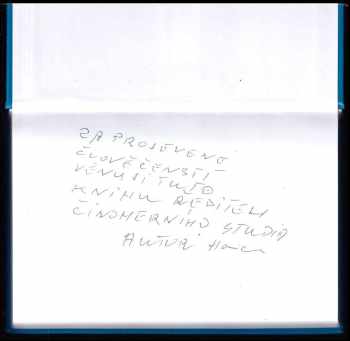 ZA PROJEVENÉ
ČLOVĚČENSTÍ
VĚNUJI TUTO
KNIHU ŘEDITELI
ČINOHERNÍHO STUDIA
AUTOR